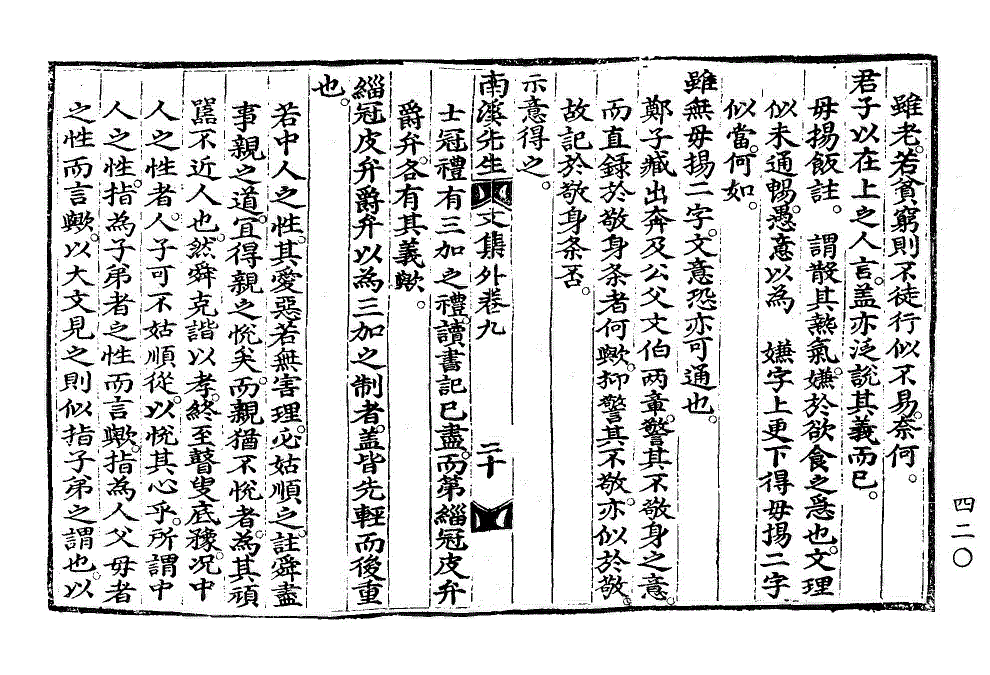 雖老。若貧窮則不徒行似不易。奈何。
君子以在上之人言。盖亦泛說其義而已。
毋揚飯註。 謂散其熱氣。嫌於欲食之急也。文理
似未通暢。愚意以為 嫌字上更下得毋揚二字
似當。何如。
雖無毋揚二字。文意恐亦可通也。
鄭子臧出奔及公父文伯兩章。警其不敬身之意。
而直錄於敬身条者何歟。抑警其不敬。亦似於敬。
故記於敬身条否。
示意得之。
南溪先生文集外卷九 二十
士冠禮有三加之禮。讀書記已盡。而第緇冠皮弁
爵弁。各有其義歟。
緇冠皮弁爵弁以為三加之制者。盖皆先輕而後重
也。
若中人之性。其愛惡若無害理。必姑順之。註舜盡
事親之道。宜得親之悅矣。而親猶不悅者。為其頑
嚚不近人也。然舜克諧以孝。終至瞽叟底豫。况中
人之性者。人子可不姑順從。以悅其心乎。所謂中
人之性。指為子弟者之性而言歟。指為人父毋者
之性而言歟。以大文見之則似指子弟之謂也。以
四二〇